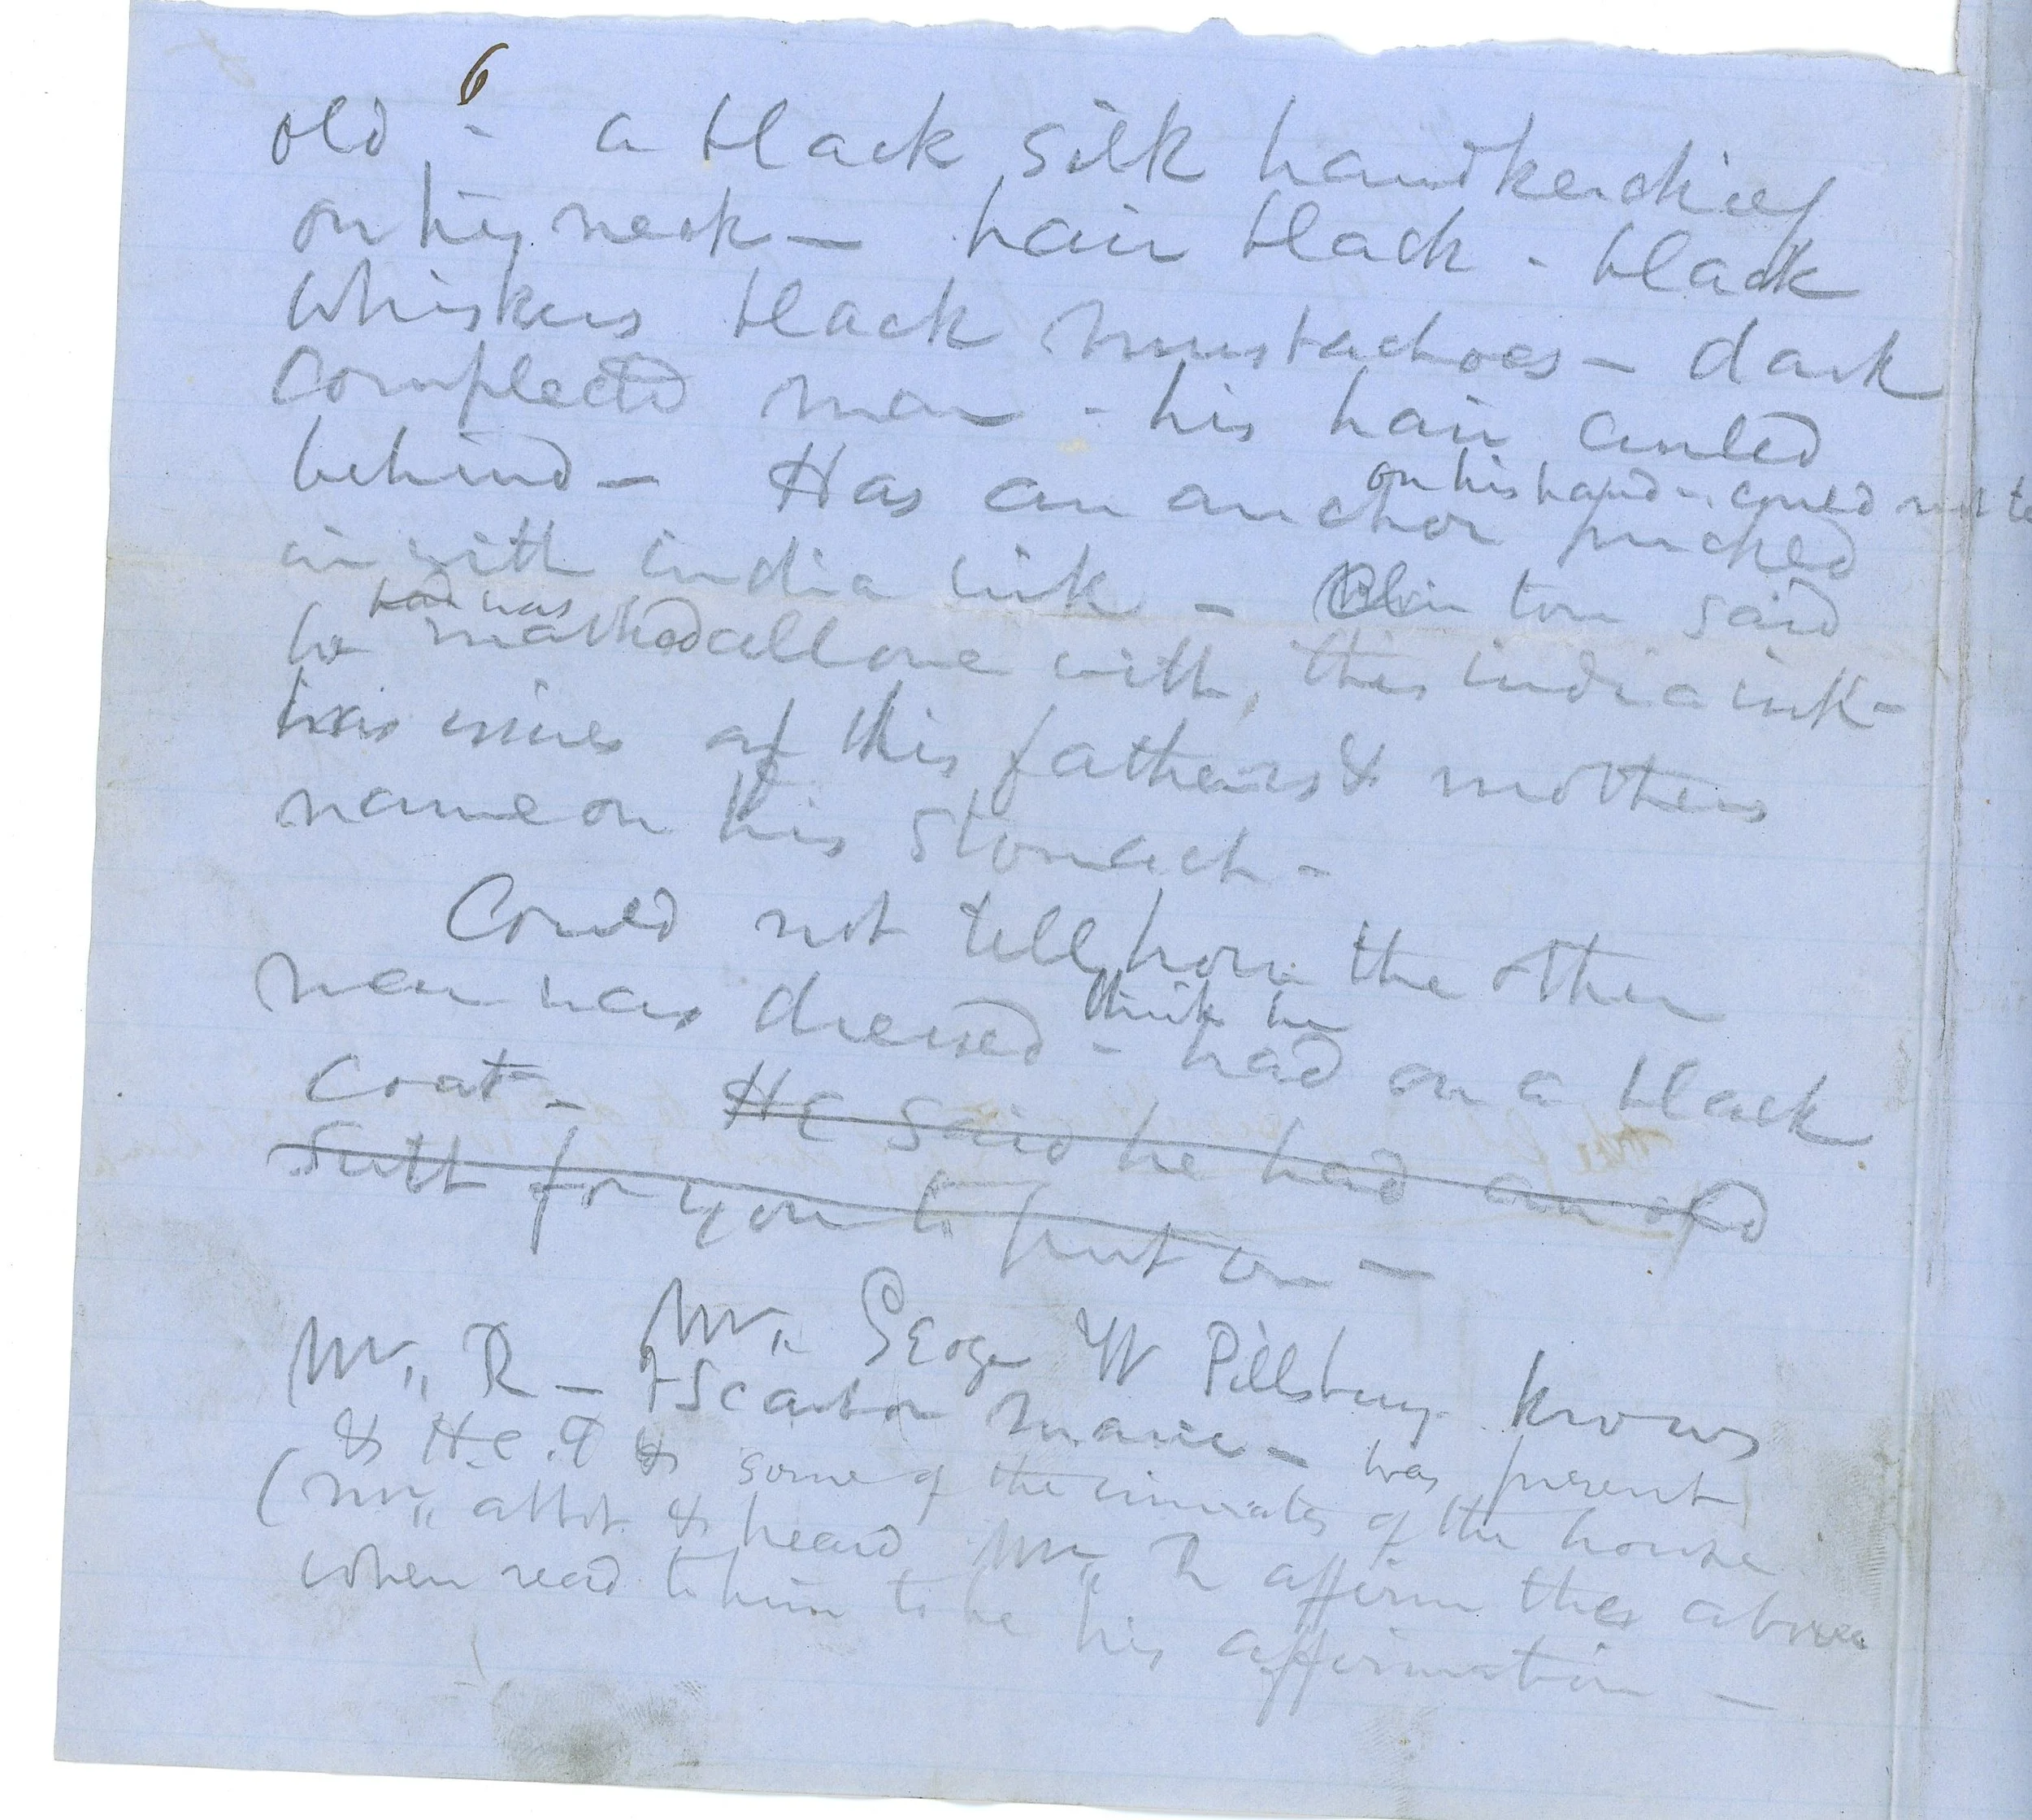 6
old - a black silk handkerchief
on his neck - hair black - black
whiskers black mustachoes - dark
complected man - his hair curled
behind - Has an anchor pricked
on his hand - could not te
in with india ink - Clin ton said
had was
he marked all over with this india ink -
was of his fathers & mothers
name on his stomach -
Could not tell how the other
man was dressed - had on a black
think he
coat - He said he had an old
suit for you to put on -
Mr. George W Pillsbury knows
Mr. R - was present
& H.C. & some of the inmates of the house
(Mr. & heard Mr. R affirm the above
when read to him to be his affirmation -